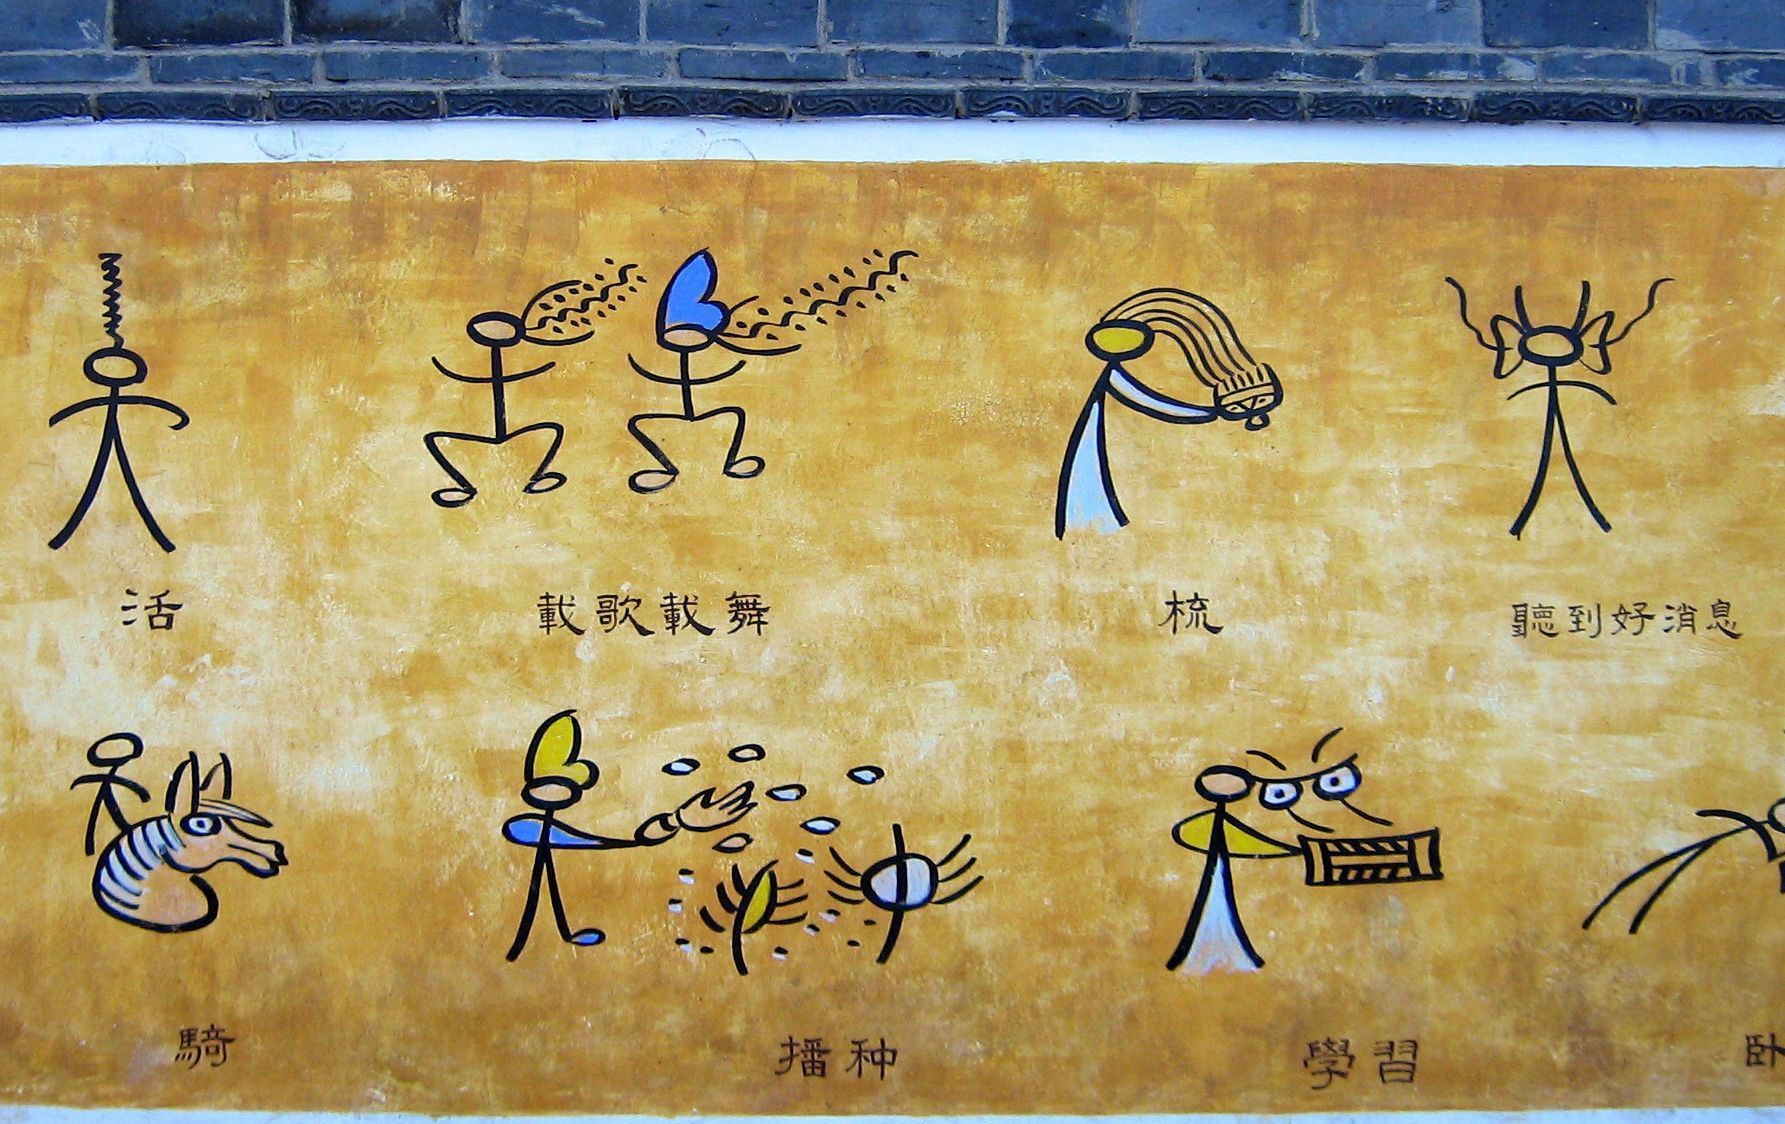 活
載歌載舞
梳
聽到好消息
騎
播种
學習
卧